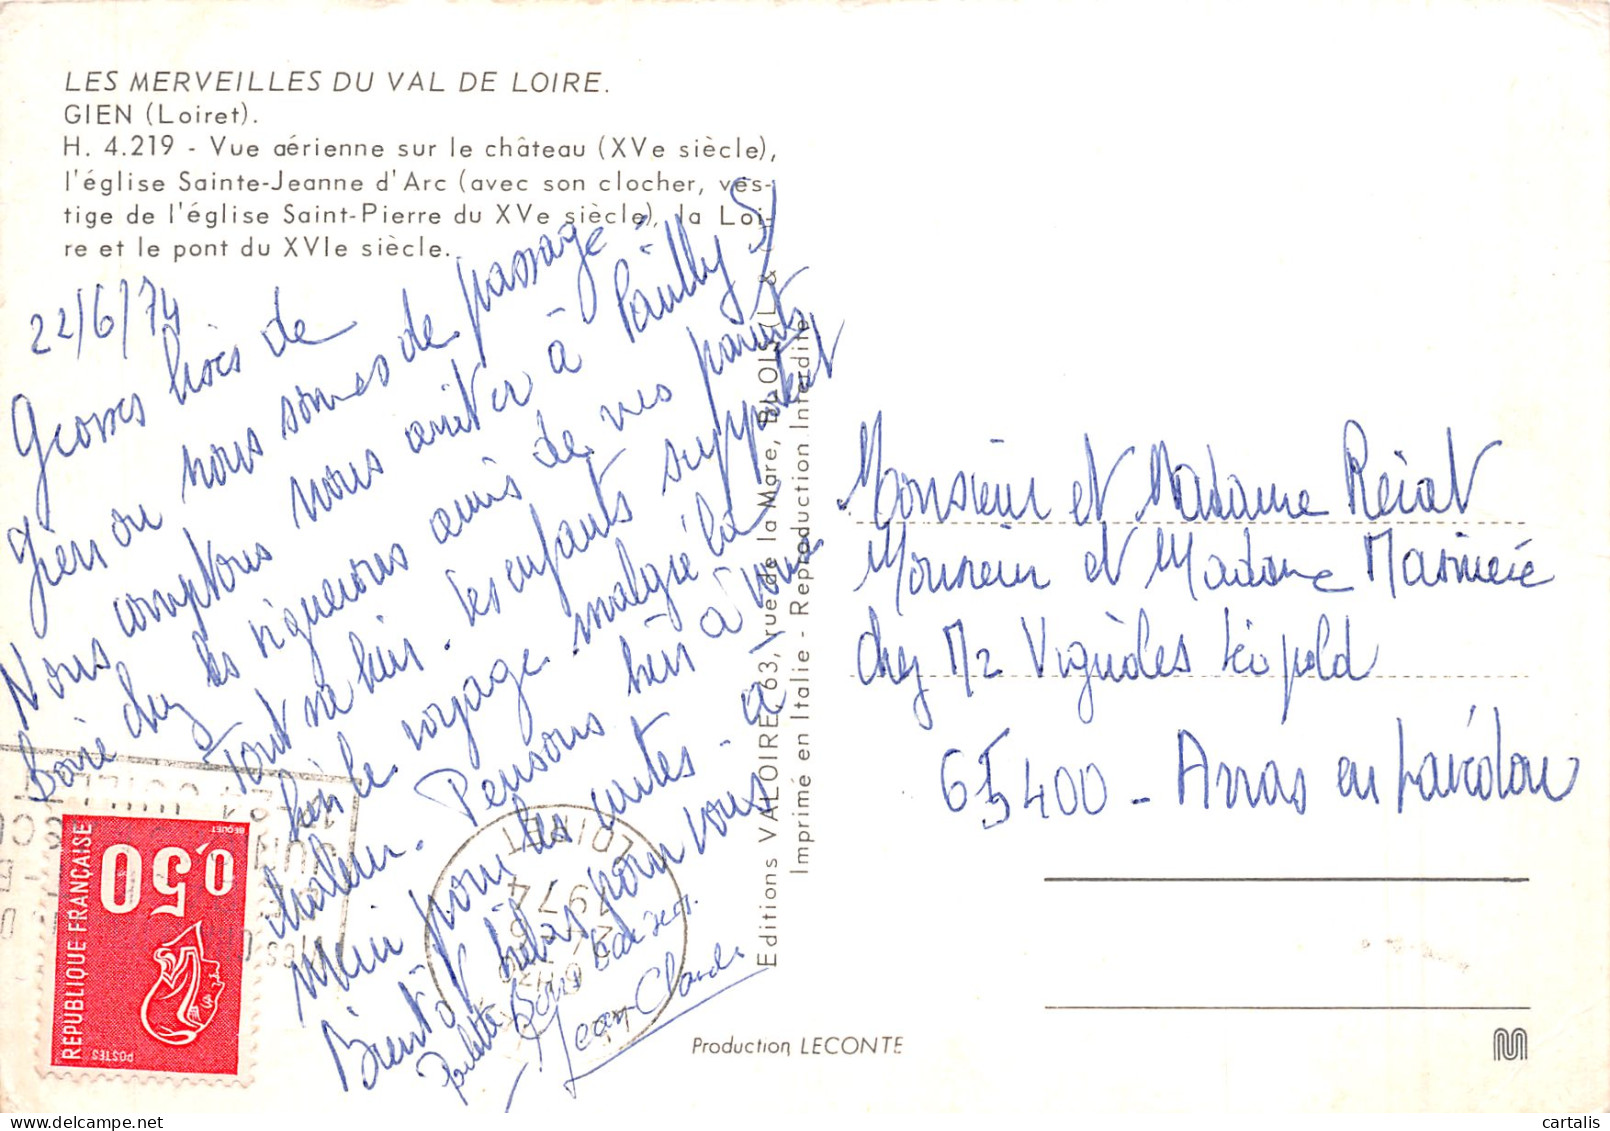 LES MERVEILLES DU VAL DE LOIRE.
GIEN (Loiret).
H. 4.219 - Vue aérienne sur le château (XVe siècle),
l'église Sainte-Jeanne d'Arc (avec son clocher, ves-
tige de l'église Saint-Pierre du XVe siècle), la Loi-
re et le pont du XVIe siècle.
22/6/74
Grosses bises de
Gien ou nous sommes de passage
Nous comptons nous arrêter à Pouilly S/
boire chez les vignerons amis de mes parents
Tout va bien. Les enfants supportent
bien le voyage malgré la
chaleur. Pensons bien à vous
pour les
Bientôt hélas pour vous
Paulette Bons baisers.
Jean Claude
Editions VALOIRE 63, rue de la Mare, BLOIS (L. & C.)
Imprimé en Italie - Reproduction Interdite
Monsieur et Madame
Monsieur et Madame
chez Mr Vignoles Léopold
65400 - Arras en Lavedan
Production LECONTE
REPUBLIQUE FRANÇAISE
0,50
POSTES
BEQUET
LOIRET
cartalis